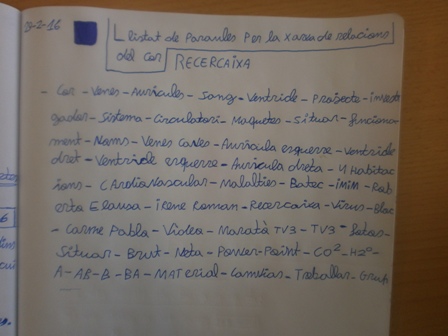 23-2-16
Llistat de Paraules Per la xarxa de relacions
del cor RECERCAIXA
- Cor - Venes - Aurícules - Sang - Ventricle - Projecte - investi
gador - Sistema - Circulatori - Maquetes - Situar - funciona
ment - Noms - Venes Caves - Aurícula esquerre - Ventricle
dret - Ventricle esquerre - Aurícula dreta - 4 Habitac
ions - CArdioVascular - Malalties - Batec - iMiM - Rob
erto Elosua - irene Roman - Recercaixa - Virus -
- Carme Pabla - Video - Marató TV3 - TV3 -
Situar - Brut - Neta - Power-Point - CO² - H²O -
A - AB - B - BA - MATerial - Canviar - Treballar - Grup